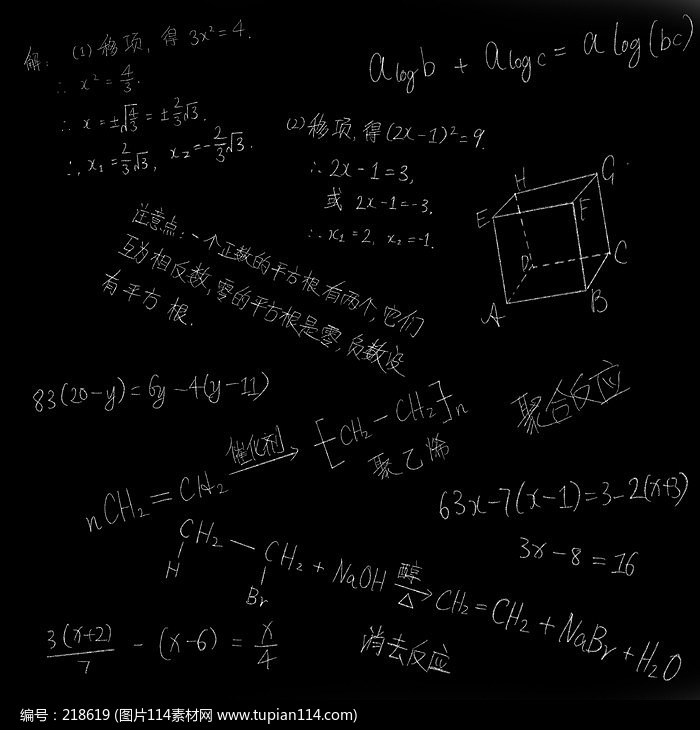 解: (1) 移项, 得 3x²=4.
∴ x²=4/3.
∴ x=±√(4/3)=±2/3√3.
∴ x₁=2/3√3, x₂=-2/3√3.
a log b + a log c = a log(bc)
(2) 移项, 得(2x-1)²=9.
∴ 2x-1=3,
或 2x-1=-3.
∴ x₁=2, x₂=-1.
H G
E F
D C
A B
注意点: 一个正数的平方根有两个, 它们
互为相反数, 零的平方根是零, 负数没
有平方根.
83(20-y)=6y-4(y-11)
nCH₂=CH₂ 催化剂→ [CH₂-CH₂]n
聚乙烯
聚合反应
63x-7(x-1)=3-2(x+3)
3x-8=16
CH₂-CH₂+NaOH 醇△→ CH₂=CH₂+NaBr+H₂O
H Br
消去反应
3(x+2)/7-(x-6)=x/4
编号：218619 (图片114素材网 www.tupian114.com)